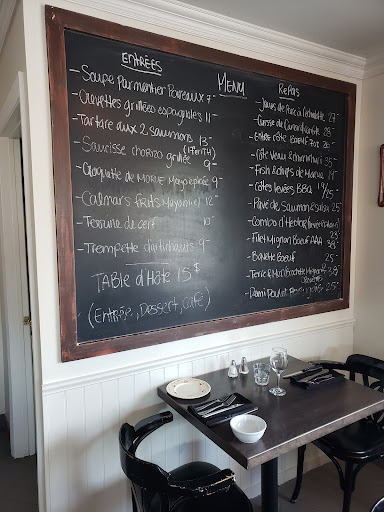 ENTRÉES
- Soupe Parmentier Poireaux 7-
- Crevettes grillées espagnoles 11-
- Tartare aux 2 saumons 13-
- Saucisse chorizo grillée 9-
- Croquette de MORUE Mayo épicée 9-
- Calmars frits Mayo 12-
- Terrine de cerf 10-
- Trempette d'artichauts 9-
TABLE d'Hôte 15$
(Entrée, Dessert, café)
MENU
RePas
- Joues de Porc
- Cuisse de Canard 28-
- Entrecôte BOEUF 30-
- Côte Veau 35-
- Fish & chips de Morue 19-
- Côtes levées BBQ 19/25-
- Pavé de Saumon & salsa 25-
- Combo d'Hector
- Filet Mignon Boeuf AAA 38-
- Bavette Boeuf 25-
- Terre & Mer
- Demi Poulet 25-